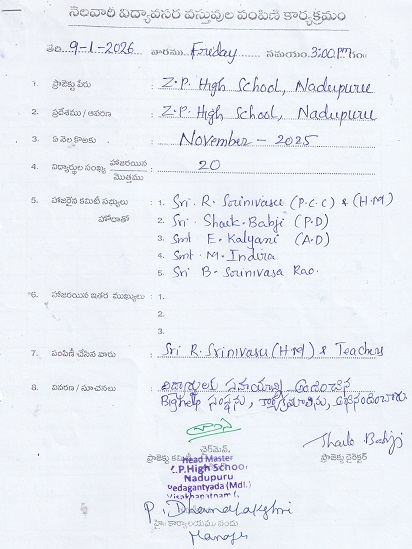 నెలవారీ విద్యావసర వస్తువుల పంపిణీ కార్యక్రమం
తేది: 9-1-2026 వారము Friday సమయం: 3:00 PM గం
1. ప్రాజెక్టు పేరు : Z.P. High School, Nadupuru
2. ప్రదేశము / ఆవరణ : Z.P. High School, Nadupuru
3. ఏ నెల కొఱకు : November - 2025
4. విద్యార్థుల సంఖ్య హాజరయిన మొత్తము : 20
5. హాజరైన కమిటీ సభ్యులు హోదాతో : 1. Sri. R. Srinivasu (P.C.C) & (H.M)
2. Sri. Shaik. Babji (P.D)
3. Smt E. Kalyani (A.D)
4. Smt. M. Indira
5. Sri B. Srinivasa Rao.
6. హాజరయిన ఇతర ముఖ్యులు : 1.
2.
3.
7. పంపిణీ చేసిన వారు : Sri R. Srinivasu (H.M) & Teachers
8. వివరణ / సూచనలు : విద్యార్థులకు సహాయాన్ని అందించిన
Bighelp సంస్థను, కార్యక్రమాలను, అభినందించారు.
ఛైర్మెన్,
ప్రాజెక్టు కమిటీ
Shaik Babji
ప్రాజెక్టు డైరెక్టర్
Head Master
Z.P. High School
Nadupuru
Pedagantyada (Mdl.)
Visakhapatnam
P. Dhanalakshmi
హై: కార్యాలయము నందు
Manager